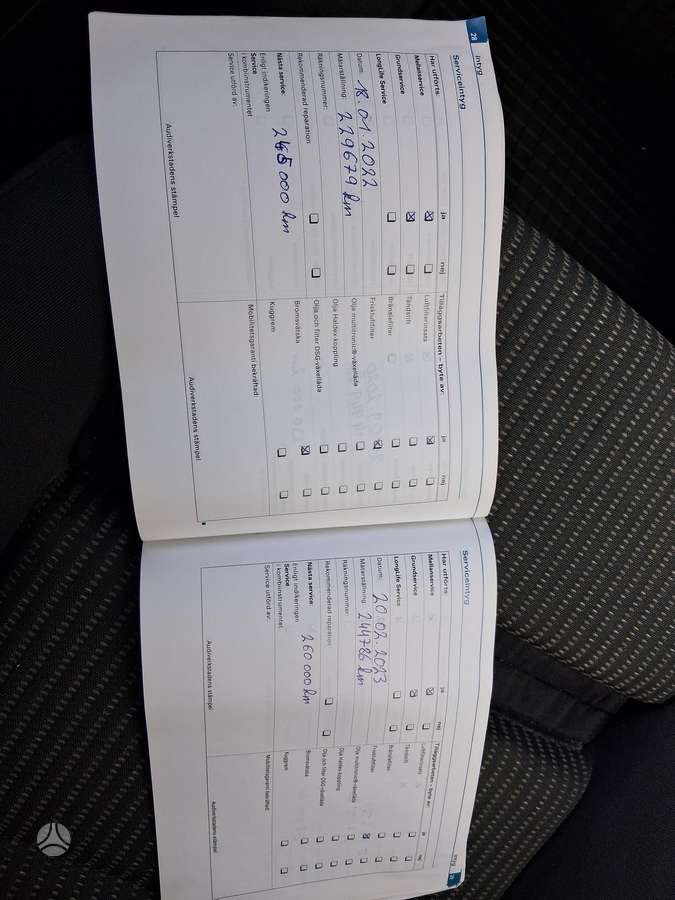 28
Intyg
Serviceintyg
Har utförts:
ja
nej
Mellanservice
Grundservice
LongLife Service
Datum: 18.01.2022
Mätarställning: 229679 km
Räkningsnummer:
Rekommenderad reparation
Nästa service:
Enligt indikeringen
Service
i kombiinstrumentet
245 000 km
Service utförd av:
Audiverkstadens stämpel
Tilläggsarbeten – byte av:
ja
nej
Luftfilterinsats
Tändstift
Bränslefilter
Friskluftfilter
Olja multitronic®-växellåda
Olja Haldex-koppling
Olja och filter DSG-växellåda
Bromsvätska
Kuggrem
Mobilitetsgaranti bekräftad:
Audiverkstadens stämpel
Intyg
Serviceintyg
Har utförts:
ja
nej
Mellanservice
Grundservice
LongLife Service
Datum: 20.02.2023
Mätarställning: 244786 km
Räkningsnummer:
Rekommenderad reparation
Nästa service:
Enligt indikeringen
Service
i kombiinstrumentet
260 000 km
Service utförd av:
Audiverkstadens stämpel
Tilläggsarbeten – byte av:
ja
nej
Luftfilterinsats
Tändstift
Bränslefilter
Friskluftfilter
Olja multitronic®-växellåda
Olja Haldex-koppling
Olja och filter DSG-växellåda
Bromsvätska
Kuggrem
Mobilitetsgaranti bekräftad:
Audiverkstadens stämpel